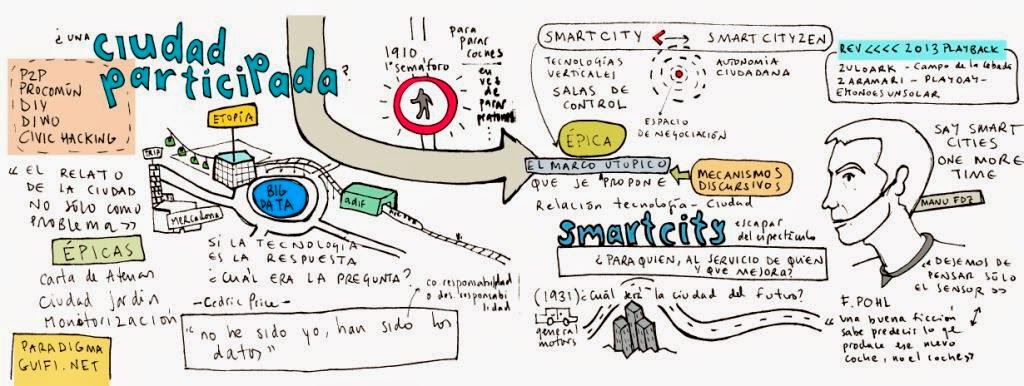 ¿UNA
CIUDAD
PARTICIPADA?
P2P
PROCOMÚN
DIY
DIWO
CIVIC HACKING
"EL RELATO
DE LA CIUDAD
NO SÓLO COMO
PROBLEMA»
ÉPICAS
Carta de Atenas
Ciudad Jardín
Monitorización
PARADIGMA
GUIFI.NET
ETOPÍA
MERCADONA
BIG
DATA
adif
SI LA TECNOLOGÍA
ES LA RESPUESTA
¿CUÁL ERA LA PREGUNTA?
-Cedric Price-
co responsabilidad
o des responsabi
lidad
"no he sido yo, han sido los
datos"
1910
1er semáforo
para
parar
coches
en vez
de parar
peatones
SMARTCITY < > SMARTCITYZEN
TECNOLOGÍAS
VERTICALES
SALAS DE
CONTROL
AUTONOMÍA
CIUDADANA
ESPACIO
DE NEGOCIACIÓN
ÉPICA
EL MARCO UTÓPICO
QUE SE PROPONE
MECANISMOS
DISCURSIVOS
Relación tecnología-Ciudad
smartcity
escapar
del espectáculo
¿PARA QUIEN, AL SERVICIO DE QUIEN
Y QUE MEJORA?
(1931) ¿Cuál será la ciudad del futuro?
general
motors
REV <<<< 2013 PLAYBACK
ZULOARK - Campo de la Cebada
ZARAMARI - PLAYDAY-
EHONOESUNSOLAR
SAY SMART
CITIES
ONE MORE
TIME
MANU FDZ
«DEJEMOS DE
PENSAR SÓLO
EL SENSOR»
F. POHL
"una buena ficción
sabe predecir lo qe
produce ese nuevo
coche, no el coche»